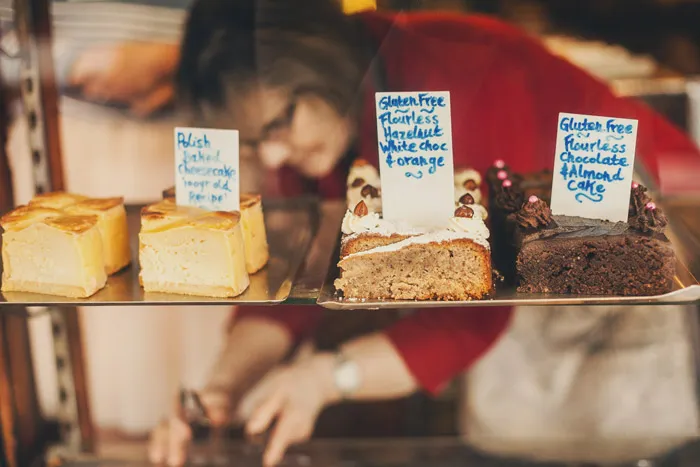 Polish
Baked
Cheesecake
recipe
Gluten Free
Flourless
Hazelnut
White choc
& orange
Gluten Free
Flourless
Chocolate
& Almond
Cake